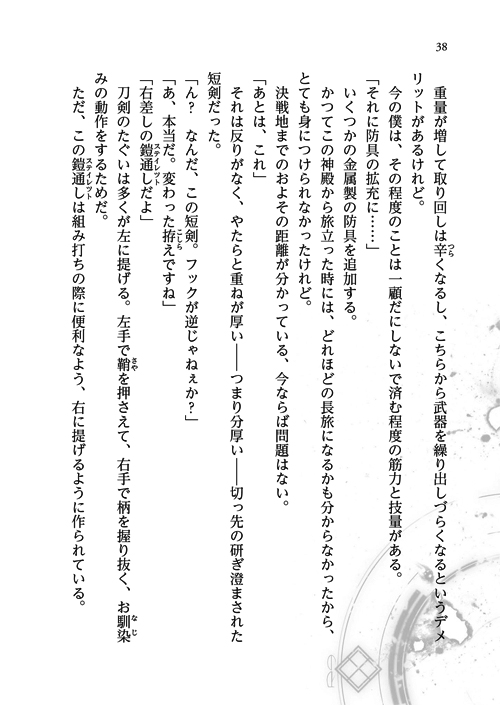 38
重量が増して取り回しは辛くなるし、こちらから武器を繰り出しづらくなるというデメ
リットがあるけれど。
今の僕は、その程度のことは一顧だにしないで済む程度の筋力と技量がある。
「それに防具の拡充に……」
いくつかの金属製の防具を追加する。
かつてこの神殿から旅立った時には、どれほどの長旅になるかも分からなかったから、
とても身につけられなかったけれど。
決戦地までのおよその距離が分かっている、今ならば問題はない。
「あとは、これ」
それは反りがなく、やたらと重ねが厚い――つまり分厚い――切っ先の研ぎ澄まされた
短剣だった。
「ん？　なんだ、この短剣。フックが逆じゃねぇか？」
「あ、本当だ。変わった拵えですね」
「右差しの鎧通しだよ」
刀剣のたぐいは多くが左に提げる。左手で鞘を押さえて、右手で柄を握り抜く、お馴染
みの動作をするためだ。
ただ、この鎧通しは組み打ちの際に便利なよう、右に提げるように作られている。
つら
こしら
スティレット
さや
なじ
スティレット